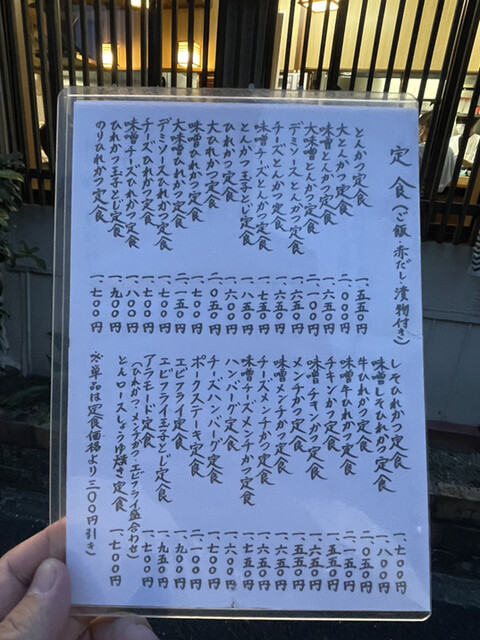 定食(ご飯・赤だし 漬物付き)
とんかつ定食 一、五五〇円
大とんかつ定食 二、〇〇〇円
味噌とんかつ定食 一、六五〇円
大味噌とんかつ定食 二、一〇〇円
デミソースとんかつ定食 一、六五〇円
チーズとんかつ定食 一、六五〇円
味噌チーズとんかつ定食 一、七五〇円
とんかつ玉子とじ定食 一、八五〇円
ひれかつ定食 一、六〇〇円
大ひれかつ定食 二、〇五〇円
味噌ひれかつ定食 一、七〇〇円
大味噌ひれかつ定食 二、一五〇円
デミソースひれかつ定食 一、七〇〇円
チーズひれかつ定食 一、七〇〇円
味噌チーズひれかつ定食 一、八〇〇円
ひれかつ玉子とじ定食 一、九〇〇円
のりひれかつ定食 一、七〇〇円
しそひれかつ定食 一、七〇〇円
味噌しそひれかつ定食 一、八〇〇円
牛ひれかつ定食 二、〇五〇円
味噌牛ひれかつ定食 二、一五〇円
チキンかつ定食 一、五五〇円
味噌チキンかつ定食 一、六五〇円
メンチかつ定食 一、五五〇円
味噌メンチかつ定食 一、六五〇円
チーズメンチかつ定食 一、六五〇円
味噌チーズメンチかつ定食 一、七五〇円
ハンバーグ定食 一、六〇〇円
チーズハンバーグ定食 一、七〇〇円
ポークステーキ定食 二、一〇〇円
エビフライ定食 一、九〇〇円
エビフライ玉子とじ定食 一、九五〇円
アラモード定食 一、七〇〇円
(ひれかつ・メンチかつ・エビフライ盛合わせ)
とんロースしょうゆ焼き定食 一、七〇〇円
※単品は定食価格より三〇〇円引き)